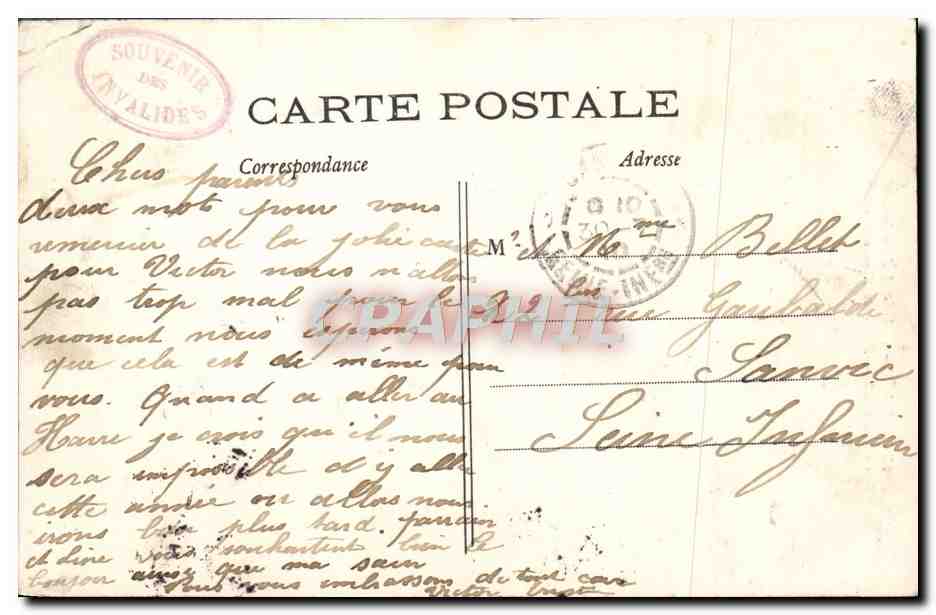 SOUVENIR
DES
INVALIDES
CARTE POSTALE
Correspondance
Adresse
Chers parents
deux mot pour vous
remercier de la jolie carte
pour Victor nous n'allons
pas trop mal pour le
moment nous esperons
que cela est de même pour
vous. Quand a aller au
Havre je crois que il nous
sera impossible d'y aller
cette année ou allors nous
irons bien plus tard. parrain
et Line vous souhaitent bien le
bonjour ainsi que ma sœur
Tous vous embrassons de tout cœur
Victor
M r & Mme Bellet
32 bis rue Garibaldi
Sanvic
Seine Inferieure
30
SEINE-INFRE
CPAPHIL